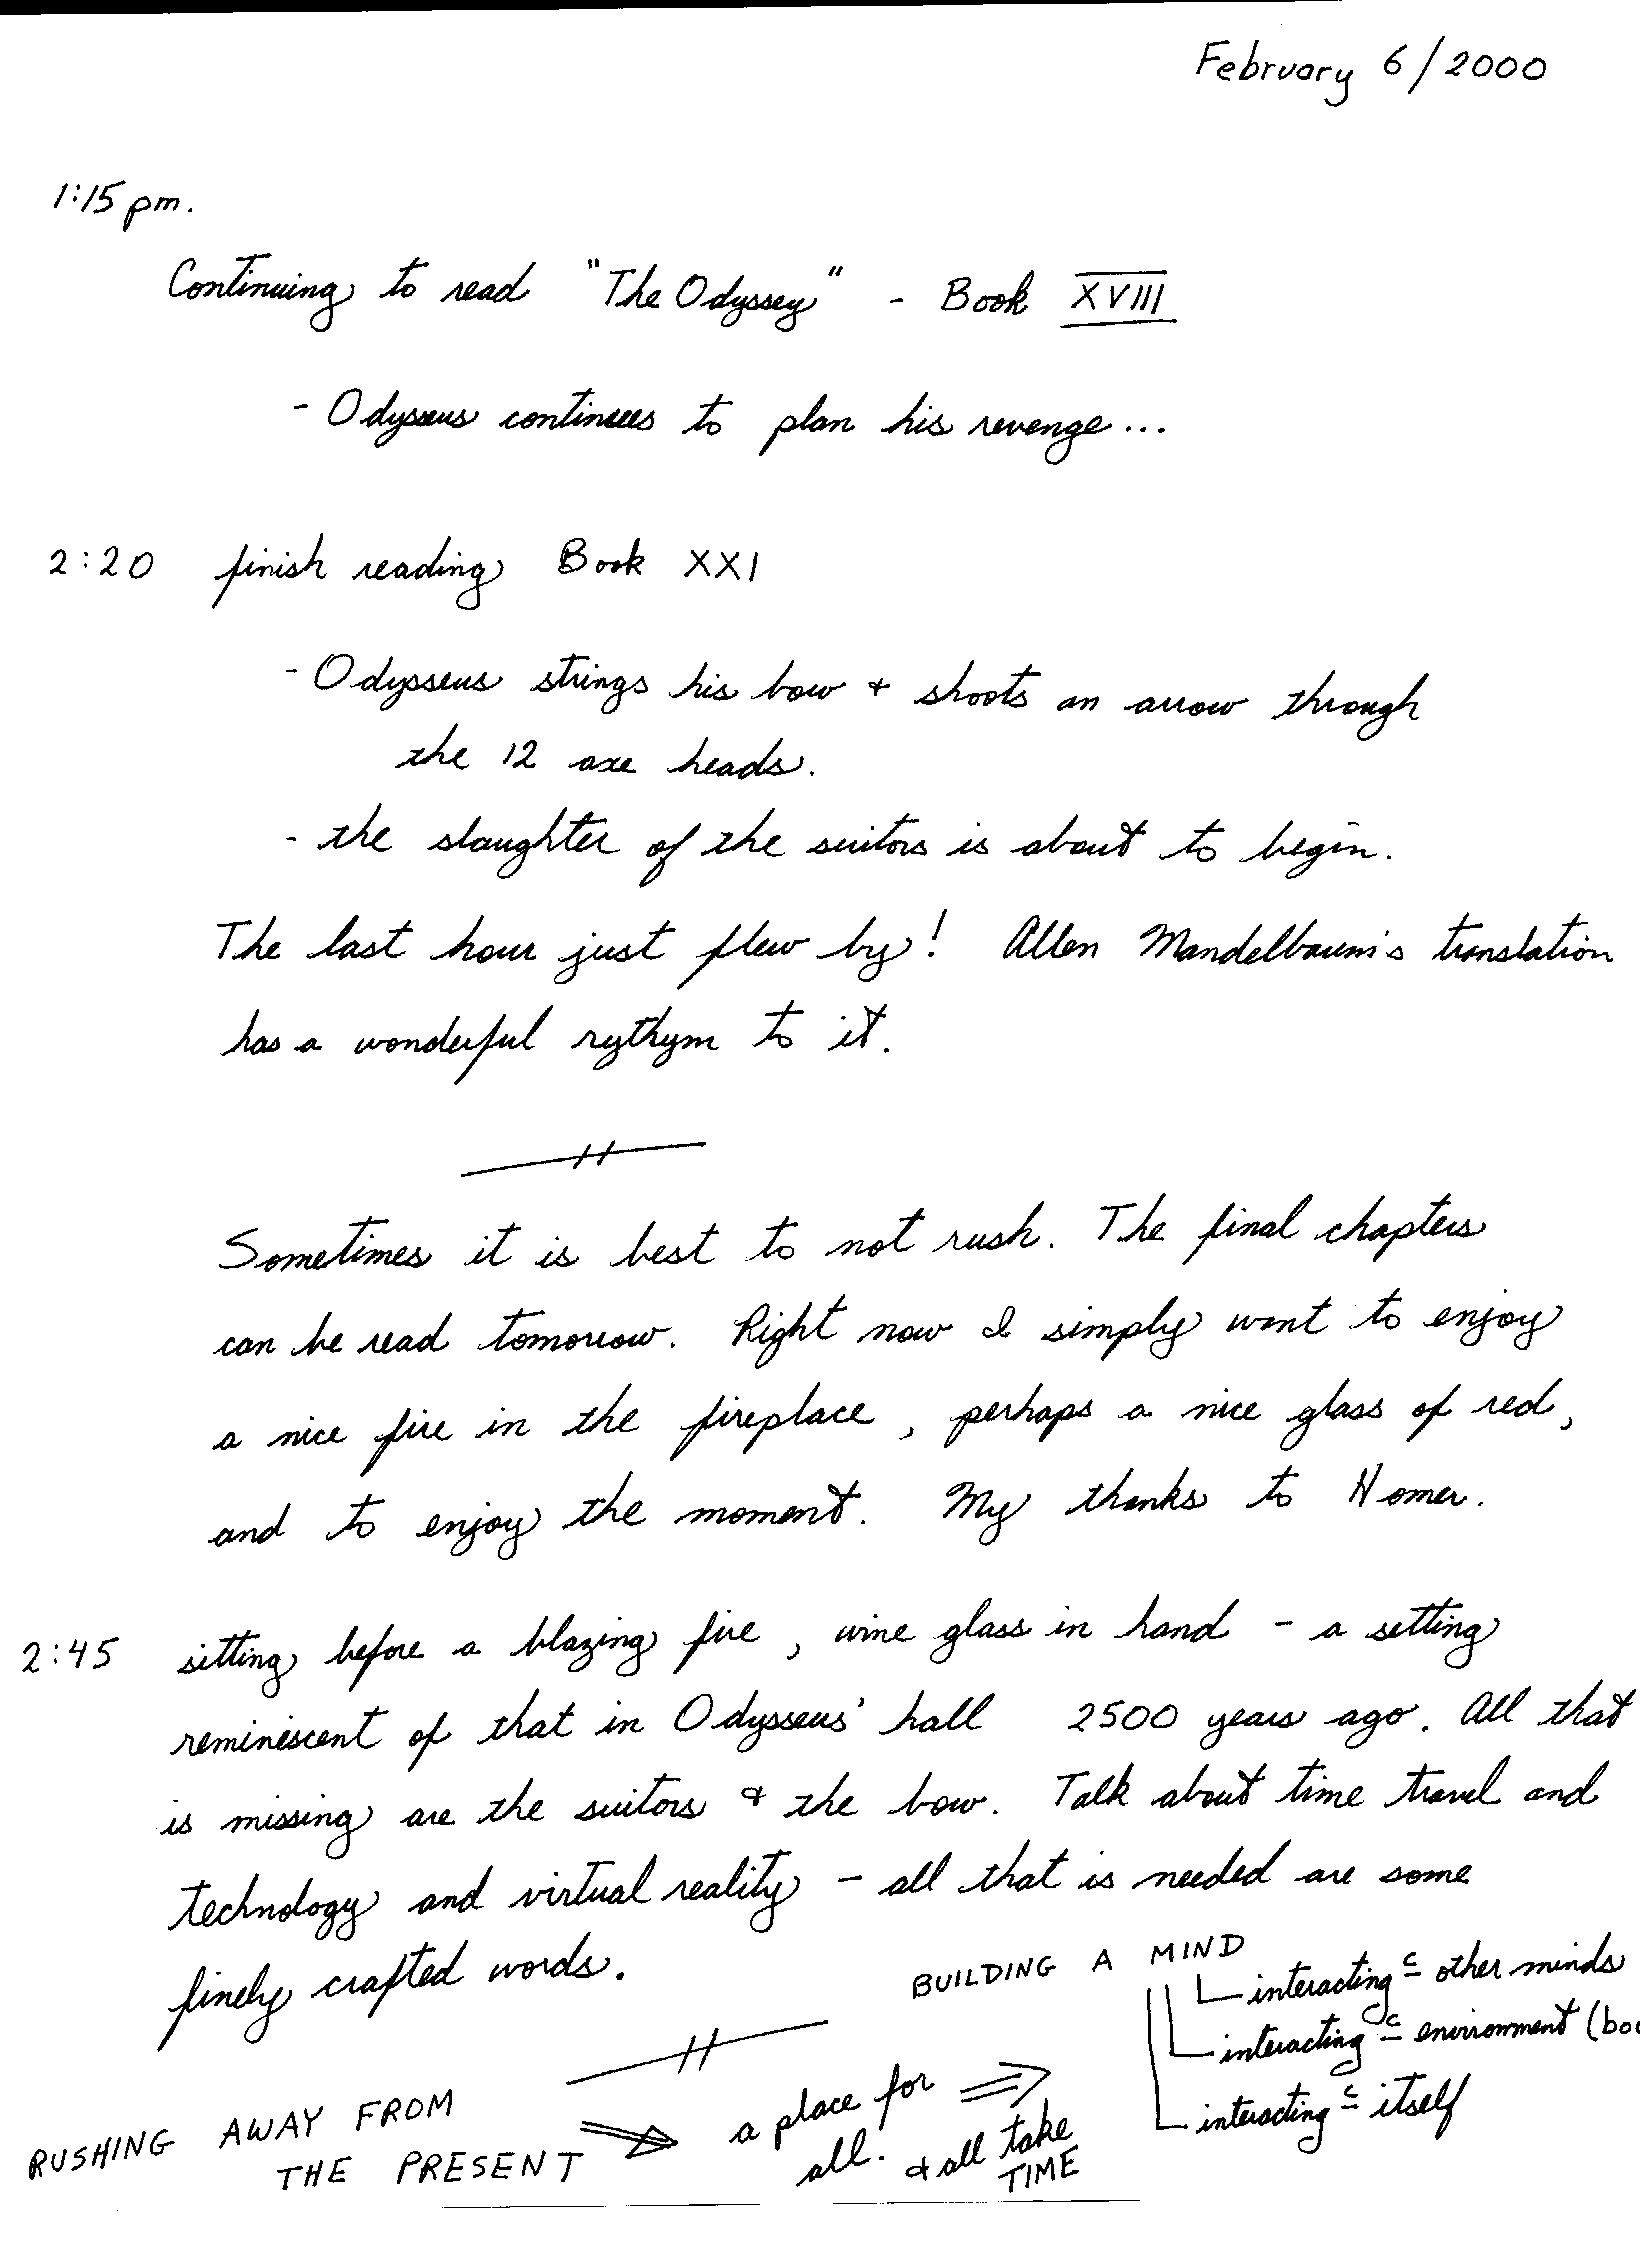 February 6/2000
1:15 pm.
Continuing to read "The Odyssey" - Book XVIII
- Odysseus continues to plan his revenge...
2:20 finish reading Book XXI
- Odysseus strings his bow + shoots an arrow through
the 12 axe heads.
- the slaughter of the suitors is about to begin.
The last hour just flew by! Allen Mandelbaum's translation
has a wonderful rythym to it.
Sometimes it is best to not rush. The final chapters
can be read tomorrow. Right now I simply want to enjoy
a nice fire in the fireplace, perhaps a nice glass of red,
and to enjoy the moment. My thanks to Homer.
2:45 sitting before a blazing fire, wine glass in hand - a setting
reminescent of that in Odysseus' hall 2500 years ago. All that
is missing are the suitors & the bow. Talk about time travel and
technology and virtual reality - all that is needed are some
finely crafted words.
BUILDING A MIND
interacting c other minds
interacting c environment (bo
interacting c itself
RUSHING AWAY FROM
THE PRESENT ⇒ a place for ⇒
all. & all take
TIME